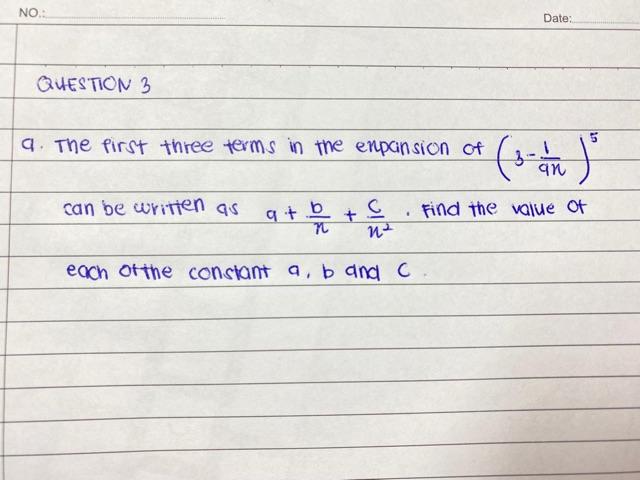 NO.:
Date:
QUESTION 3
a. The first three terms in the expansion of (3 - 1/9x)^5
can be written as a + b/x + c/x². Find the value of
each of the constant a, b and c.